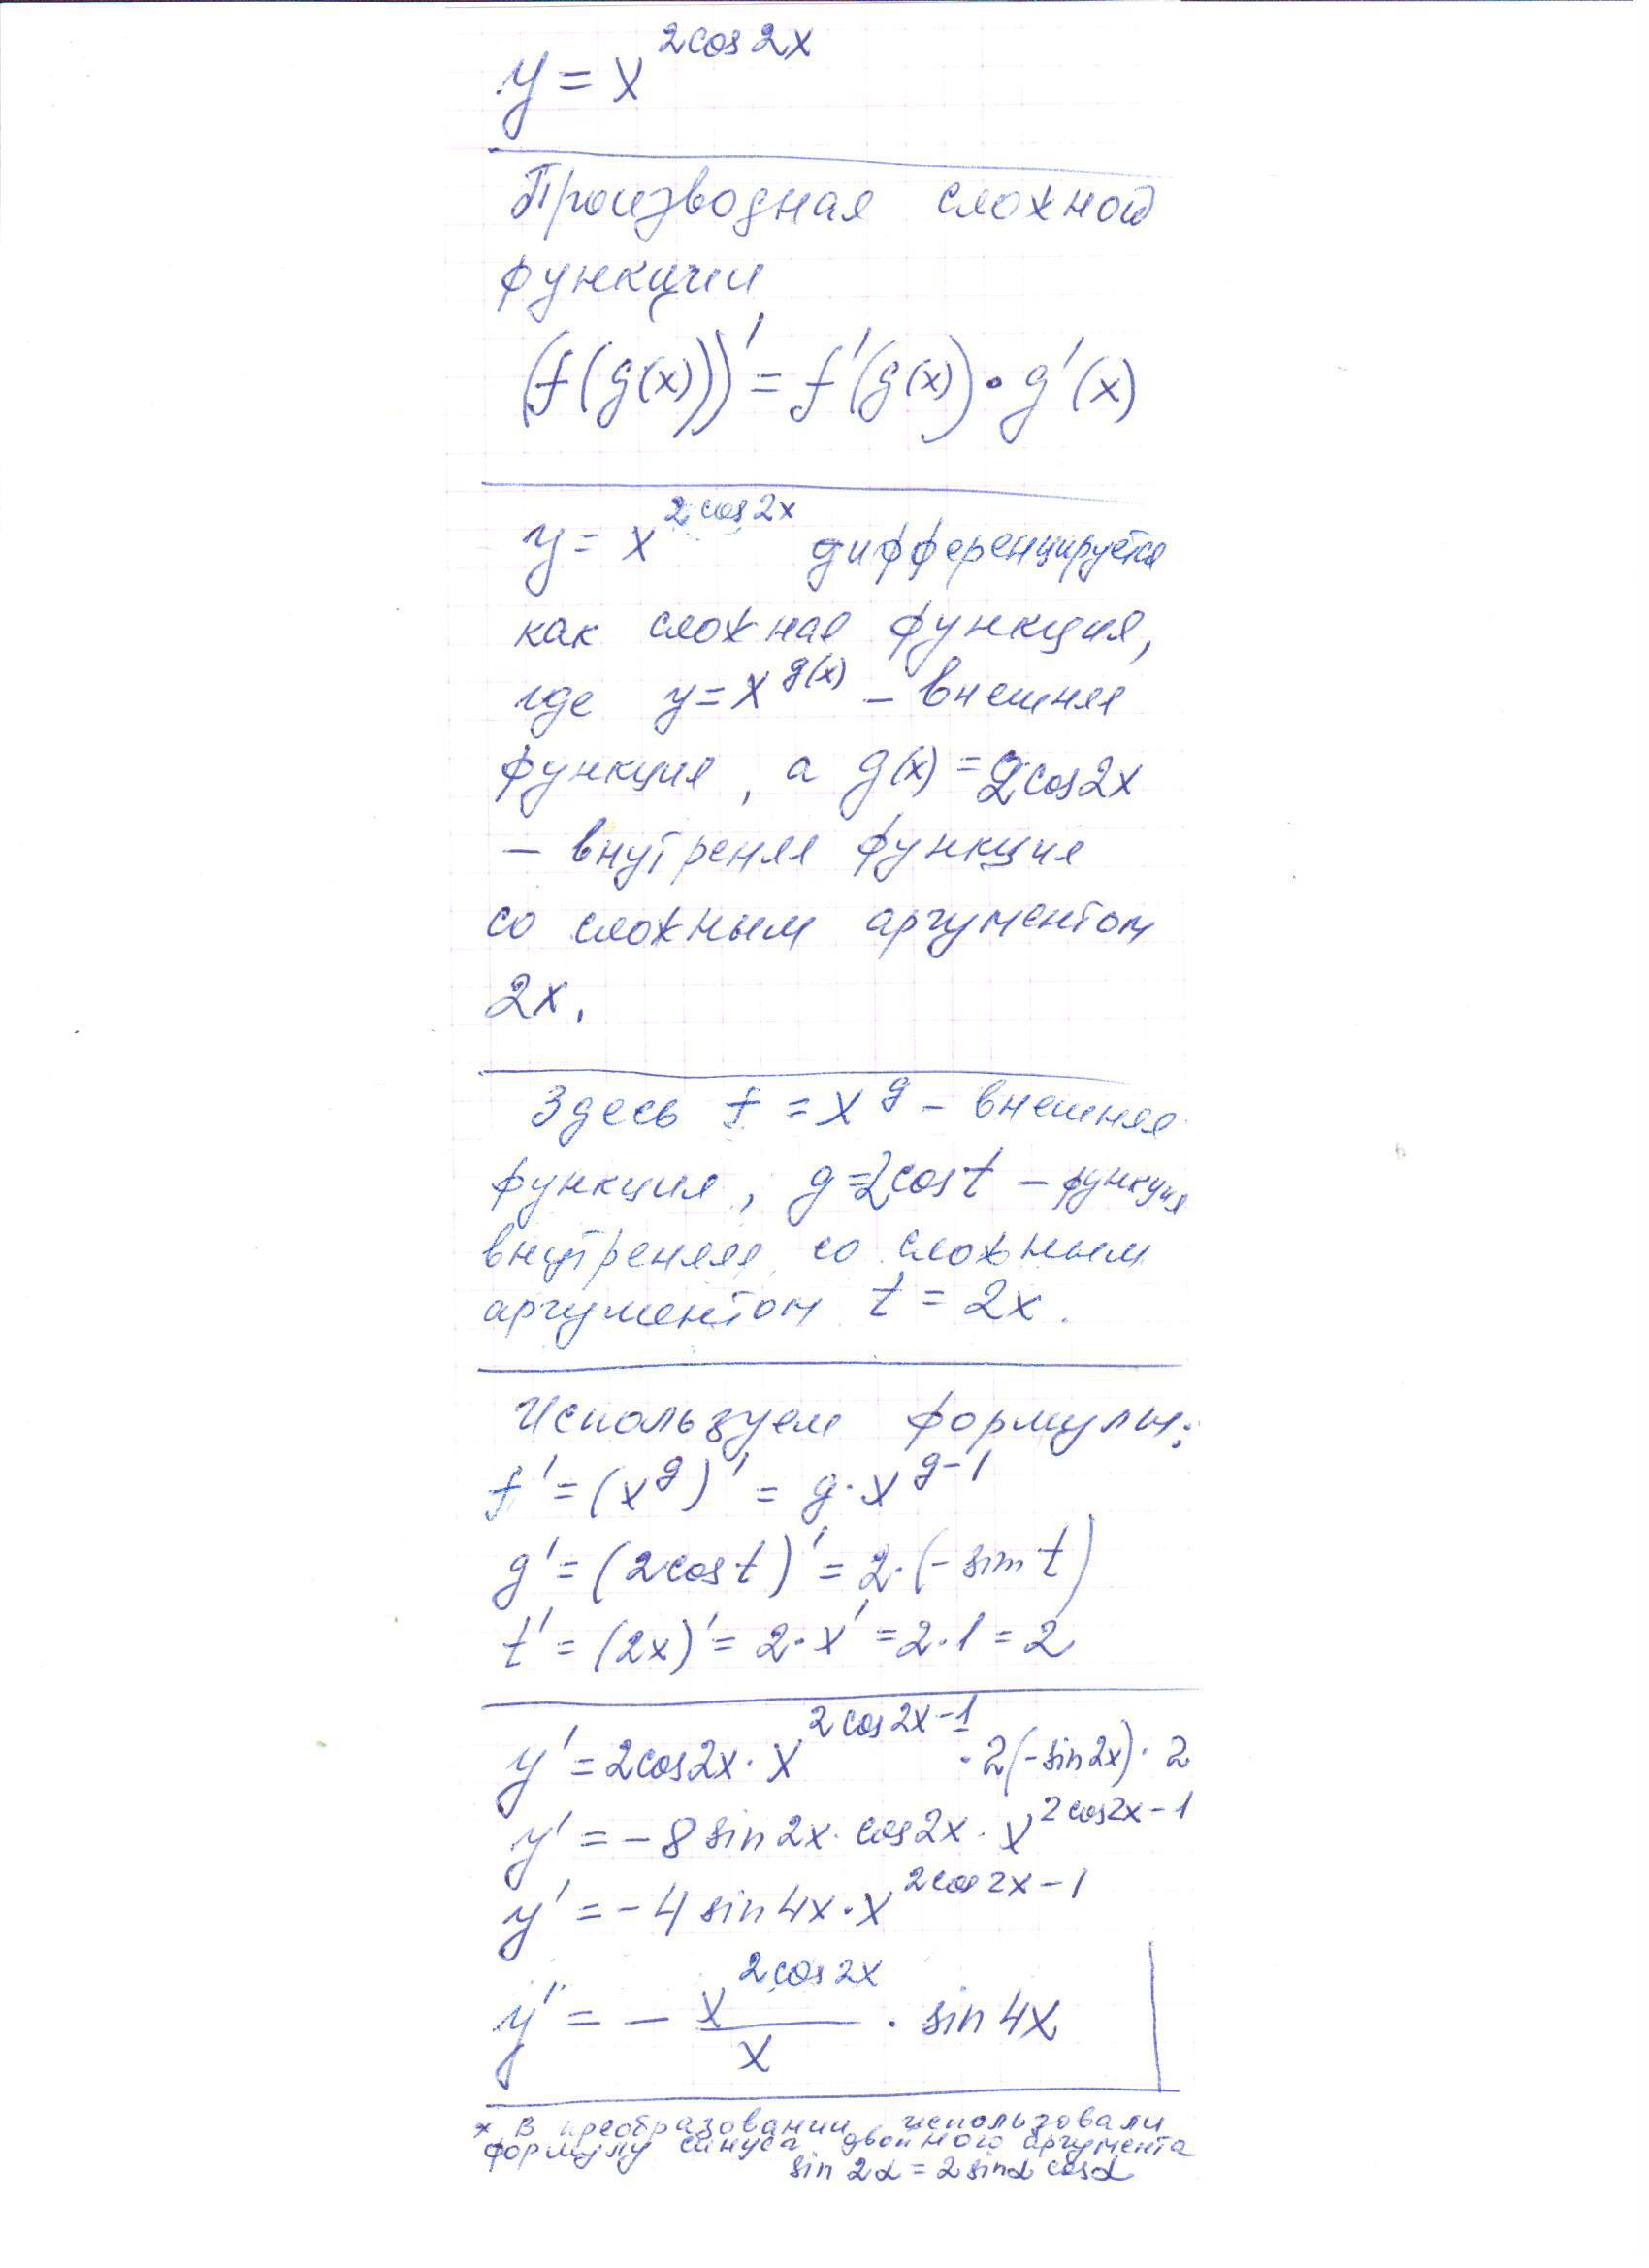 y = x^{2cos2x}
Производная сложной
функции
(f(g(x)))' = f'(g(x)) • g'(x)
y = x^{2cos2x} дифференцируется
как сложная функция,
где y = x^{g(x)} – внешняя
функция, а g(x) = 2cos2x
– внутреняя функция
со сложным аргументом
2x.
Здесь f = x^g – внешняя
функция, g=2cost – функция
внутреняя со сложным
аргументом t = 2x.
Используем формулы:
f' = (x^g)' = g·x^{g-1}
g' = (2cost)' = 2·(-sin t)
t' = (2x)' = 2·x' = 2·1 = 2
y' = 2cos2x · x^{2cos2x-1} · 2(-sin2x) · 2
y' = -8 sin2x · cos2x · x^{2cos2x-1}
y' = -4 sin4x · x^{2cos2x-1}
y' = - \frac{x^{2cos2x}}{x} · sin4x
* В преобразовании использовали
формулу синуса двойного аргумента
sin 2α = 2sinα cosα